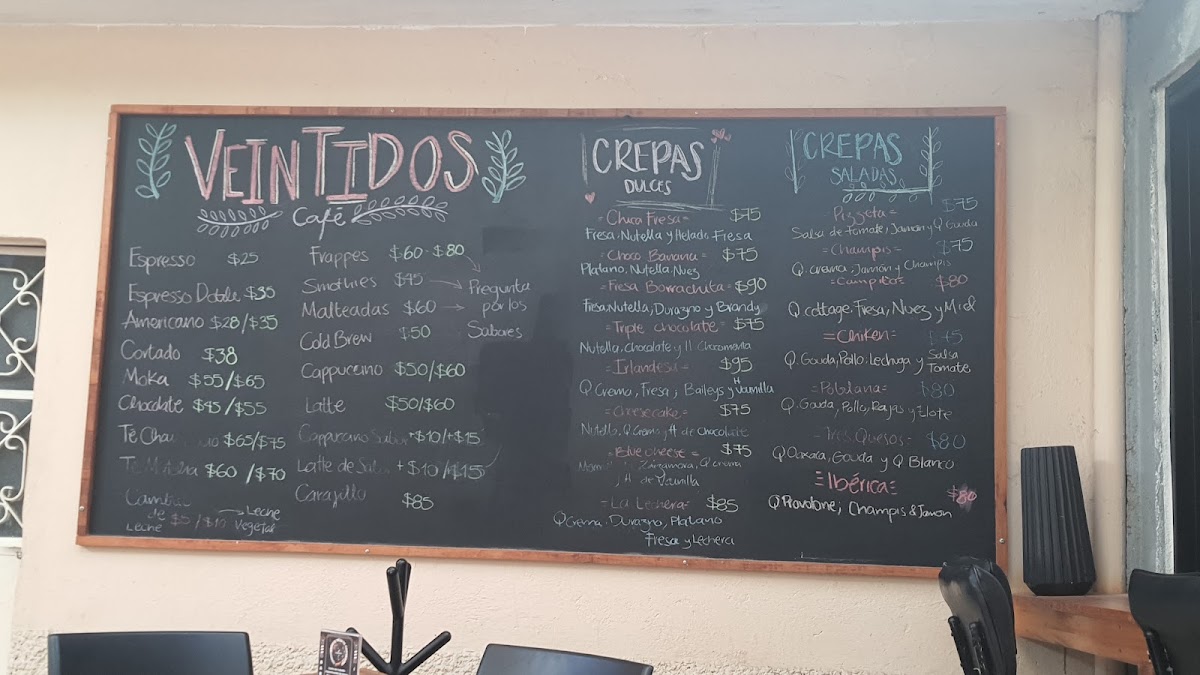 VEINTIDOS
Café
Espresso $25
Espresso Doble $35
Americano $28/$35
Cortado $38
Moka $55/$65
Chocolate $45/$55
Té $65/$75
Té $60/$70
Leche $5/$10 Leche Vegetal
Frappes $60-$80
Smothies $45
Malteadas $60
Pregunta
por los
Sabores
Cold Brew $50
Cappuccino $50/$60
Latte $50/$60
Cappuccino Sabor +$10/+$15
Latte de Sabor +$10/+$15
Carajillo $85
CREPAS
DULCES
= Choco Fresa = $75
Fresa, Nutella y Helado Fresa
= Choco Banana = $75
Platano, Nutella, Nuez
= Fresa Borrachita = $90
Fresa Nutella, Durazno y Brandy
= Triple chocolate = $75
Nutella, Chocolate y H
= Irlandesa = $95
Q Crema, Fresa, Baileys y H Vainilla
= Cheesecake = $75
Nutella, Q Crema y H de Chocolate
= Blue cheese = $75
Zarzamora, Q crema
, H de Vainilla
= La Lechera = $85
Q Crema, Durazno, Platano
Fresa y Lechera
CREPAS
SALADAS
Pizzeta = $75
Salsa de Tomate, Jamon y Q Gouda
= Champis = $75
Q crema, Jamón y Champis
$80
Q cottage, Fresa, Nuez y Miel
= Chiken =
Q. Gouda, Pollo, Lechuga y Salsa Tomate
= Poblana = $80
Q. Gouda, Pollo, Rajas y Elote
- Tres Quesos - $80
Q Oaxaca, Gouda y Q Blanco
= Ibérica = $80
Q Provolone, Champis & Jamon